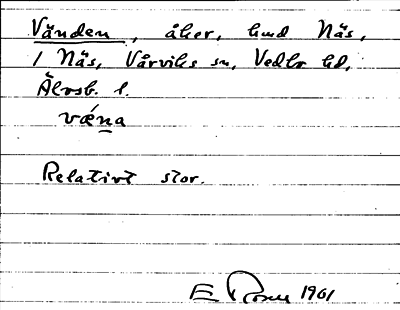 Vänden, åker, hmd Näs,
1 Näs, Vårviks sn, Vedbo hd,
Älvsb. l.
vǽna
Relativt stor.
E Rosen 1961